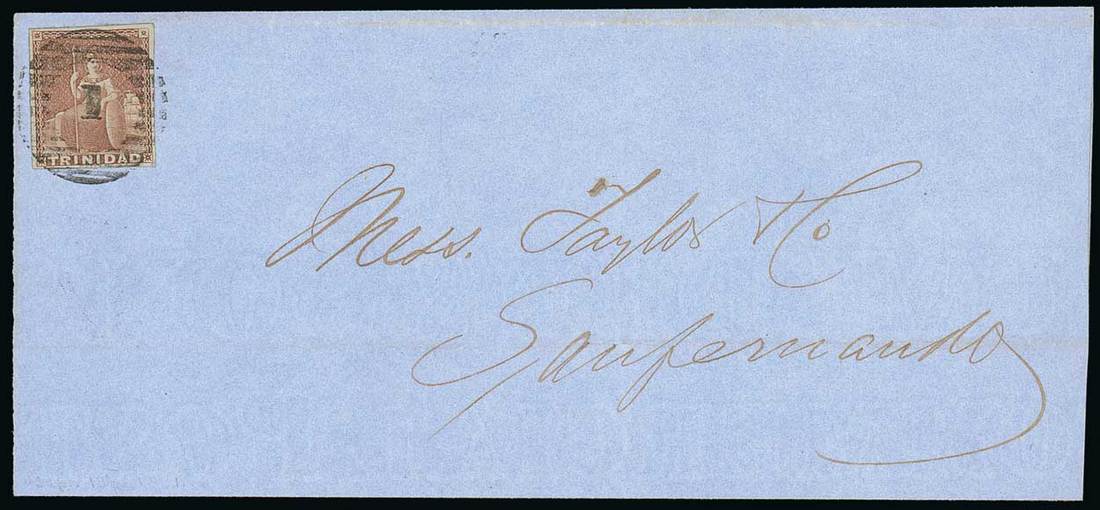 1
TRINIDAD
Mess. Taylor & Co
Sanfernando